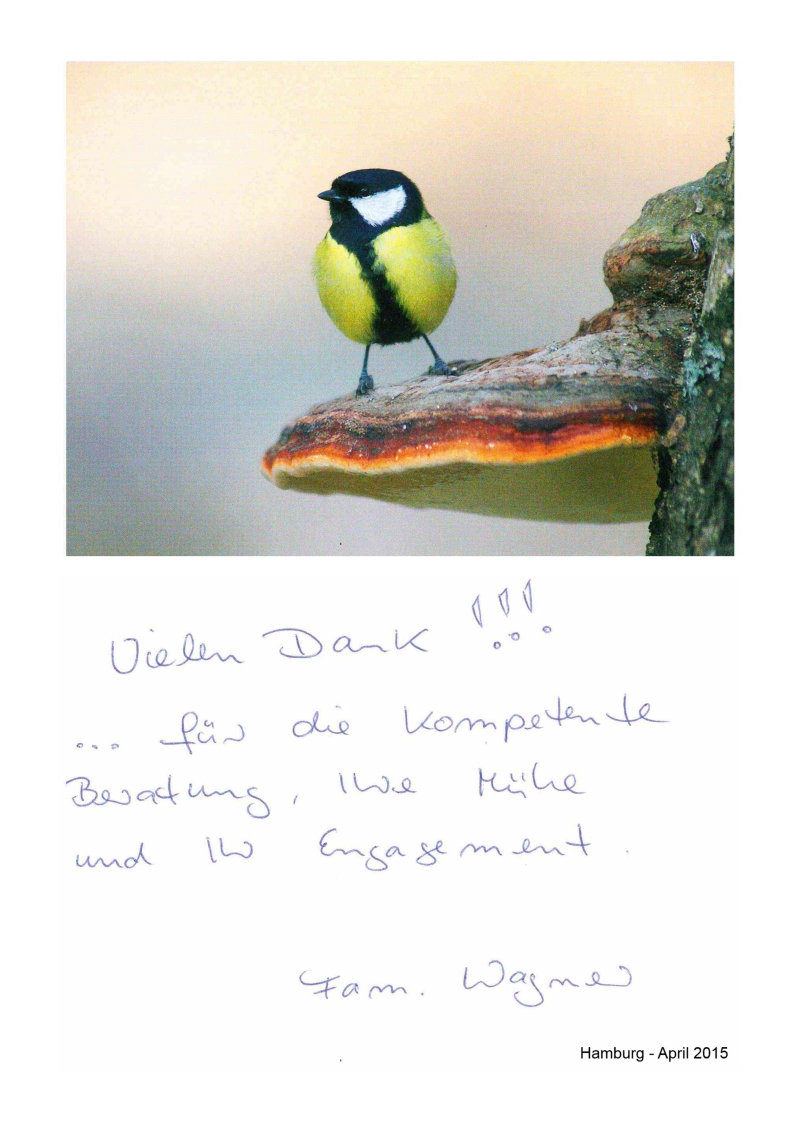 Vielen Dank !!!
... für die kompetente
Beratung, Ihre Mühe
und Ihr Engagement.
Fam. Wagner
Hamburg - April 2015